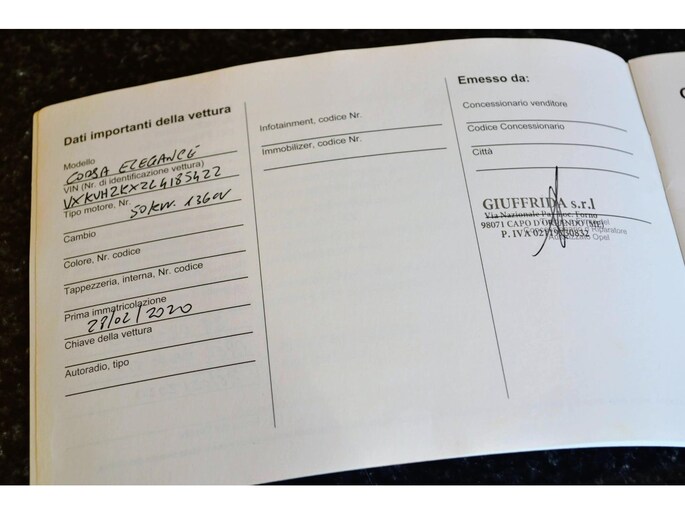 Dati importanti della vettura
Modello
CORSA ELEGANCE
VIN (Nr. di identificazione vettura)
VXKUHZKXZL4185422
Tipo motore, Nr.
50 kW. 1360V
Cambio
Colore, Nr. codice
Tappezzeria, interna, Nr. codice
Prima immatricolazione
28/02/2020
Chiave della vettura
Autoradio, tipo
Infotainment, codice Nr.
Immobilizer, codice Nr.
Emesso da:
Concessionario venditore
Codice Concessionario
Città
GIUFFRIDA s.r.l
Via Nazionale Pal. Forno
98071 CAPO D'ORLANDO (ME)
Riparatore
P. IVA
Autorizzato Opel